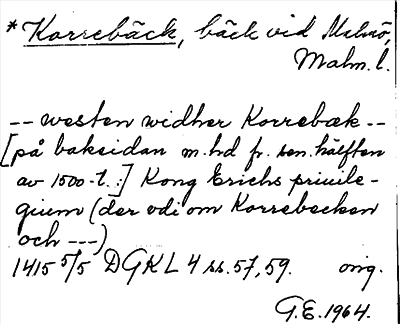 * Korrebäck, bäck vid Malmö,
Malm. l.
-- westen widher Korrebæk --
[på baksidan m. hd fr. sen. hälften
av 1500-t.:] Kong Erichs priuile-
gium (der vdi om Korrebecken
och ---)
1415 5/5 DGKL 4 ss. 57, 59. orig.
G.E. 1964.